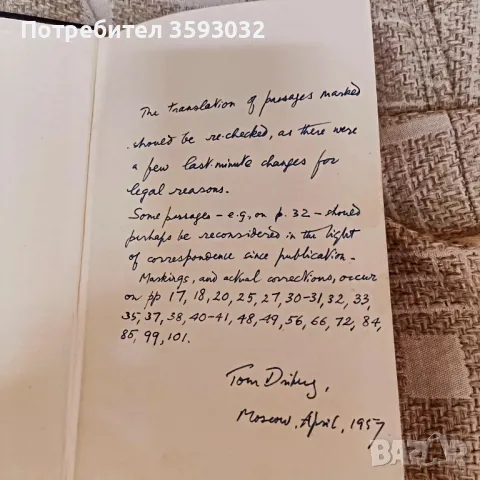 Потребител 3593032
The translation of passages marked
should be re-checked, as there were
a few last-minute changes for
legal reasons.
Some passages – e.g., on p. 32 – should
perhaps be reconsidered in the light
of correspondence since publication –
Markings, and actual corrections, occur
on pp 17, 18, 20, 25, 27, 30–31, 32, 33,
35, 37, 38, 40–41, 48, 49, 56, 66, 72, 84,
85, 99, 101.
Tom Driberg,
Moscow, April, 1957
BAZAR